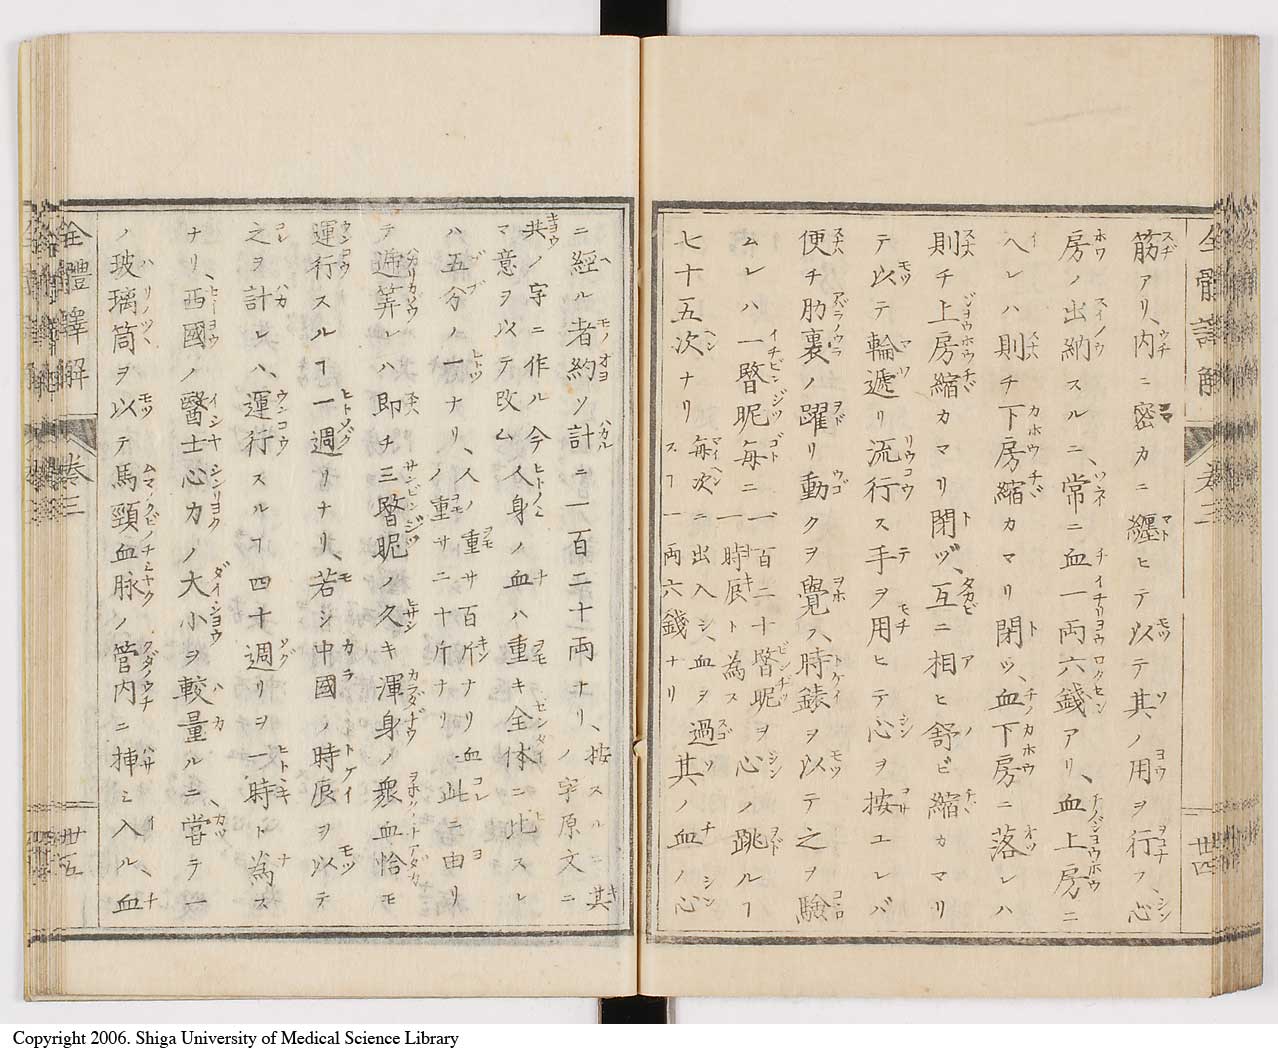 筋アリ、内ニ密カニ纏ヒテ以テ其ノ用ヲ行フ、心
房ノ出納スルニ、常ニ血一両六錢アリ、血上房ニ
入レハ則チ下房縮カマリ閉ツ、血下房ニ落レハ
則チ上房縮カマリ閉ヅ、互ニ相ヒ舒ビ縮カマリ
テ以テ輪遞リ流行ス手ヲ用ヒテ心ヲ按ユレバ
便チ肋裏ノ躍リ動クヲ覺ヘ、時錶ヲ以テ之ヲ驗
ムレハ一瞥眤毎ニ
一百二十瞥眤ヲ
一時辰ト為ス
心ノ跳ルヿ
七十五次ナリ
毎次ニ出入シ、血ヲ過
スヿ一両六錢ナリ
其ノ血ノ心
全體譯解
卷三
卅四
ニ經ル者約ソ計ニ一百二十両ナリ、
按スルニ其
ノ字原文ニ
共ノ字ニ作ル今
マ意ヲ以テ改ム
人身ノ血ハ重キ全体ニ比スレ
ハ五分ノ一ナリ、
人ノ重サ百斤ナリ血
ノ重サ二十斤ナリ
此ニ由リ
テ逓筭レハ即チ三瞥眤ノ久キ渾身ノ衆血恰モ
運行スルヿ一週リナリ、若シ中國ノ時辰ヲ以テ
之ヲ計レハ、運行スルヿ四十週リヲ一時ト為ス
ナリ、西國ノ醫士心力ノ大小ヲ較量ルニ、嘗テ一
ノ玻璃筒ヲ以テ馬頸血脉ノ管内ニ挿ミ入ル、血
全體譯解
卷三
卅五
Copyright 2006. Shiga University of Medical Science Library